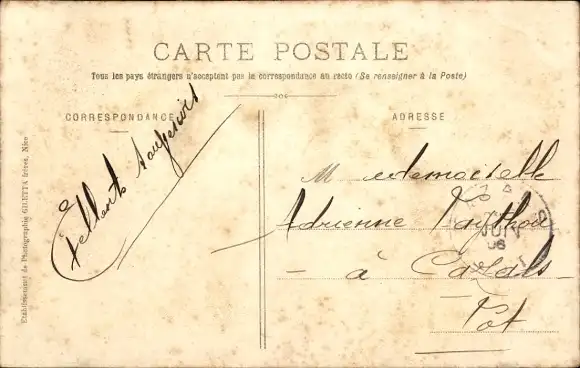 CARTE POSTALE
Tous les pays étrangers n'acceptent pas la correspondance au recto (Se renseigner à la Poste)
CORRESPONDANCE
ADRESSE
Etablissement de Photographie GILETTA frères, Nice
Mademoiselle
Adrienne
à Cazals
Lot
JUI
06